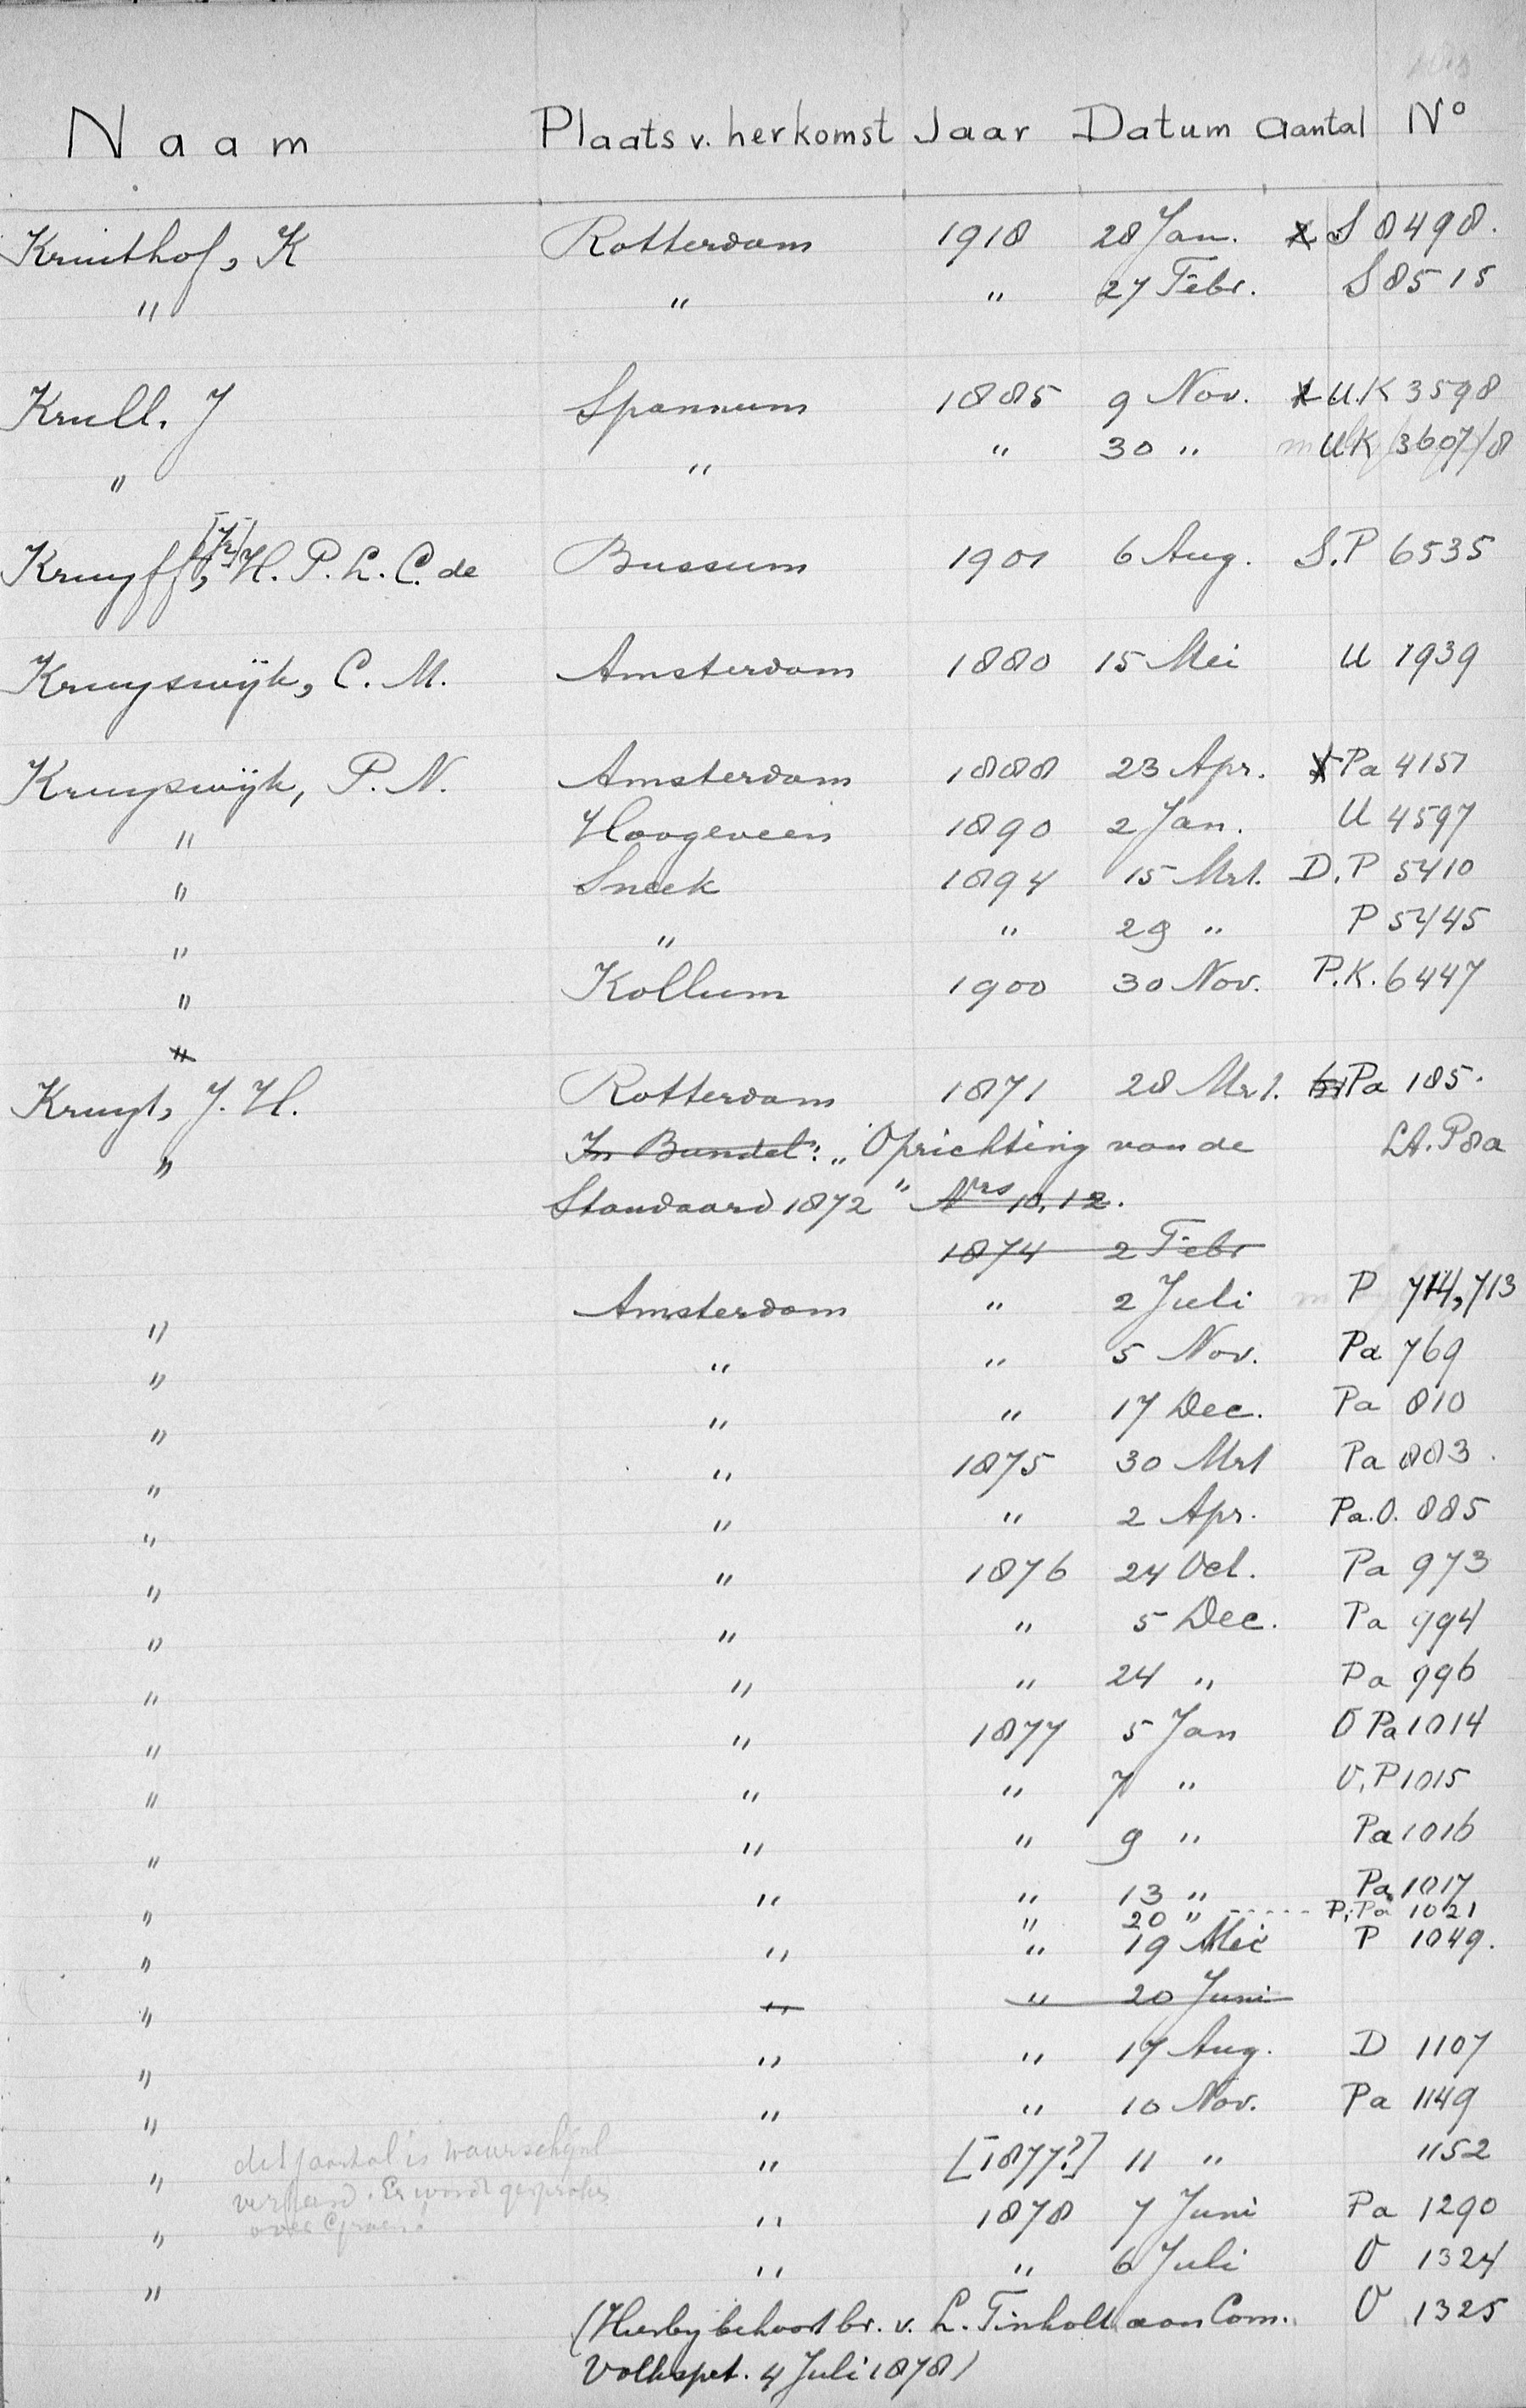 Naam Plaats v. herkomst Jaar Datum aantal No
Kruithof, K Rotterdam 1918 28 Jan. S 8498.
" " " 27 Febr. S 8515
Krull. J Spannum 1885 9 Nov. U.K 3598
" " " 30 " UK 3607/8
Kruyff, [Jr] H. P. L. C. de Bussum 1901 6 Aug. S.P 6535
Kruyswijk, C. M. Amsterdam 1880 15 Mei U 1939
Kruyswijk, P. N. Amsterdam 1888 23 Apr. Pa 4151
" Hoogeveen 1890 2 Jan. U 4597
" Sneek 1894 15 Mrt. D.P 5410
" " " 29 " P 5445
" Kollum 1900 30 Nov. P.K. 6447
"
Kruyt, J. H. Rotterdam 1871 28 Mrt. Pa 185.
" In Bundel: „Oprichting van de LA. P8a
Standaard 1872" Nrs 10, 12.
1874 2 Febr
" Amsterdam " 2 Juli P 714, 713
" " " 5 Nov. Pa 769
" " " 17 Dec. Pa 810
" " 1875 30 Mrt Pa 883.
" " " 2 Apr. Pa.O. 885
" " 1876 24 Oct. Pa 973
" " " 5 Dec. Pa 994
" " " 24 " Pa 996
" " 1877 5 Jan O Pa 1014
" " " 7 " O,P 1015
" " " 9 " Pa 1016
" " " 13 " Pa 1017
" 20 " ----- P,Pa 1021
" " " 19 Mei P 1049.
" " " 20 Juni
" " " 17 Aug. D 1107
" " " 10 Nov. Pa 1149
" dit jaartal is waarschijnl " [1877?] 11 " 1152
verkeerd. Er wordt gesproken
" over " 1878 7 Juni Pa 1290
" " " 6 Juli O 1324
(Hierby behoort br. v. L. Tinholt aan Com. O 1325
Volkspet. 4 Juli 1878)